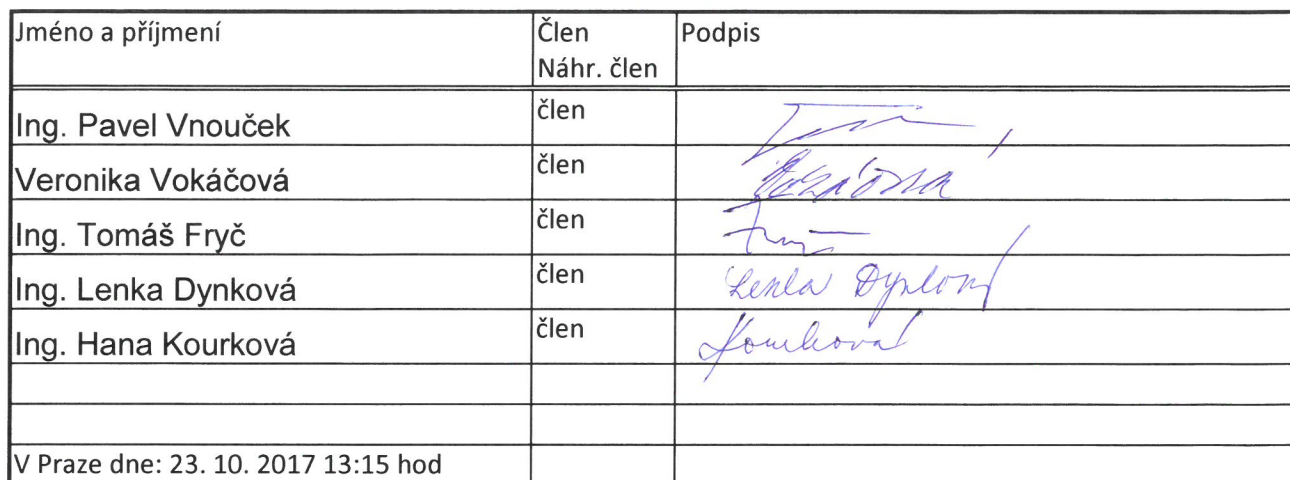 Jméno a příjmení Člen Podpis
Náhr. člen
Ing. Pavel Vnouček člen
Veronika Vokáčová člen
Ing. Tomáš Fryč člen
Ing. Lenka Dynková člen Lenka
Ing. Hana Kourková člen Kourková
V Praze dne: 23. 10. 2017 13:15 hod